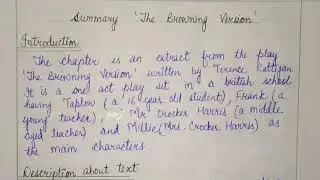 Summary 'The Browning Version'
Introduction
The chapter is an extract from the play
'The Browning Version' written by Terence Rattigan
It is a one act play set in a british school
having Taplow (a 16 year old student), Frank (a
young teacher), Mr Crocker Harris (a middle
aged teacher) and Millie (Mrs. Crocker Harris) as
the main characters
Description about text